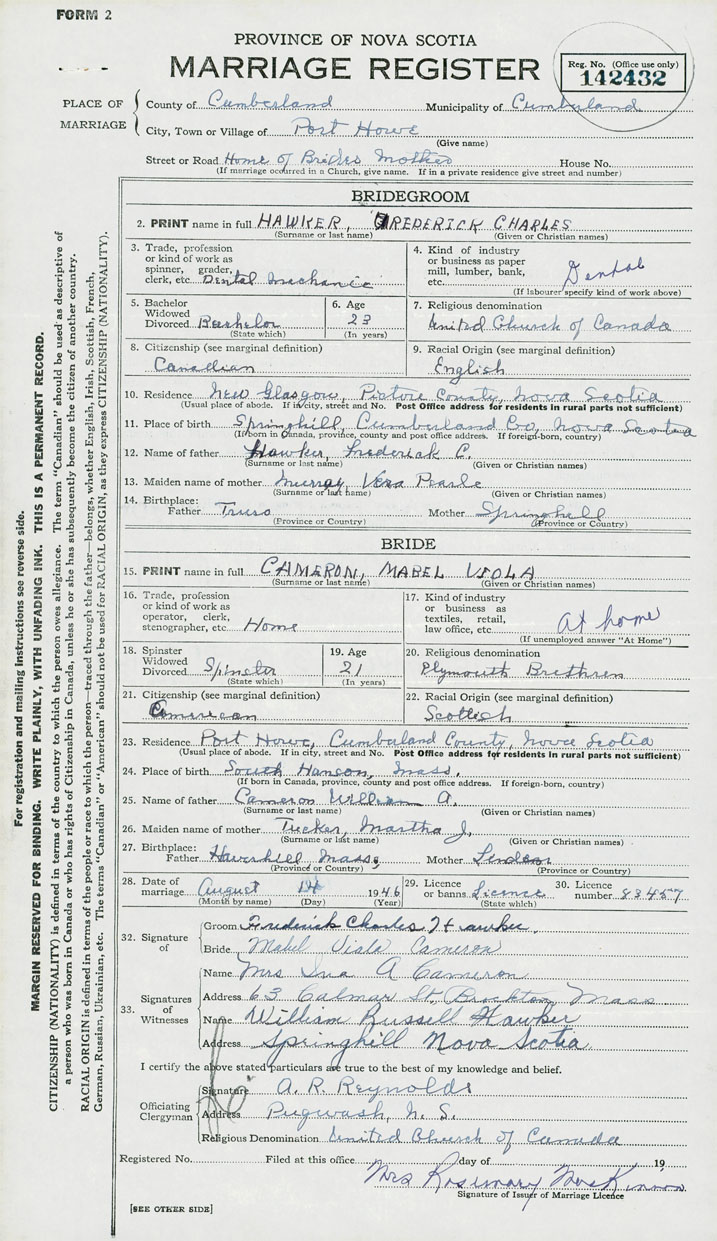 FORM 2
PROVINCE OF NOVA SCOTIA
MARRIAGE REGISTER
Reg. No. (Office use only)
142432
PLACE OF MARRIAGE
County of Cumberland Municipality of Cumberland
City, Town or Village of Port Howe
(Give name)
Street or Road Home of Brides Mother House No.
(If marriage occurred in a Church, give name. If in a private residence give street and number)
BRIDEGROOM
2. PRINT name in full HAWKER, FREDERICK CHARLES
(Surname or last name) (Given or Christian names)
3. Trade, profession
or kind of work as
spinner, grader,
clerk, etc. Dental Mechanic
4. Kind of industry
or business as paper
mill, lumber, bank,
etc. Dental
(If labourer specify kind of work above)
5. Bachelor
Widowed
Divorced Bachelor
(State which)
6. Age
23
(In years)
7. Religious denomination
United Church of Canada
8. Citizenship (see marginal definition)
Canadian
9. Racial Origin (see marginal definition)
English
10. Residence New Glasgow, Pictou County, Nova Scotia
(Usual place of abode. If in city, street and No. Post Office address for residents in rural parts not sufficient)
11. Place of birth Springhill, Cumberland Co, Nova Scotia
(If born in Canada, province, county and post office address. If foreign-born, country)
12. Name of father Hawker, Frederick C.
(Surname or last name) (Given or Christian names)
13. Maiden name of mother Murray Vera Pearle
(Surname or last name) (Given or Christian names)
14. Birthplace:
Father Truro Mother Springhill
(Province or Country) (Province or Country)
BRIDE
15. PRINT name in full CAMERON, MABEL VIOLA
(Surname or last name) (Given or Christian names)
16. Trade, profession
or kind of work as
operator, clerk,
stenographer, etc. Home
17. Kind of industry
or business as
textiles, retail,
law office, etc. At home
(If unemployed answer "At Home")
18. Spinster
Widowed
Divorced Spinster
(State which)
19. Age
21
(In years)
20. Religious denomination
Plymouth Brethren
21. Citizenship (see marginal definition)
American
22. Racial Origin (see marginal definition)
Scottish
23. Residence Port Howe, Cumberland County, Nova Scotia
(Usual place of abode. If in city, street and No. Post Office address for residents in rural parts not sufficient)
24. Place of birth South Hanson, Mass.
(If born in Canada, province, county and post office address. If foreign-born, country)
25. Name of father Cameron William A.
(Surname or last name) (Given or Christian names)
26. Maiden name of mother Tucker, Martha J.
(Surname or last name) (Given or Christian names)
27. Birthplace:
Father Haverhill Mass, Mother Linden
(Province or Country) (Province or Country)
28. Date of
marriage August 14 1946
(Month by name) (Day) (Year)
29. Licence
or banns Licence
(State which)
30. Licence
number 83457
32. Signature of
Groom Frederick Charles Hawker
Bride Mabel Viola Cameron
33. Signatures of Witnesses
Name Mrs A Cameron
Address 63 Calmar St, Brockton, Mass
Name William Russell Hawker
Address Springhill Nova Scotia
I certify the above stated particulars are true to the best of my knowledge and belief.
Officiating Clergyman
Signature A. R. Reynolds
Address Pugwash, N. S.
Religious Denomination United Church of Canada
Registered No. Filed at this office day of 19
Mrs Rosemary MacKinnon
Signature of Issuer of Marriage Licence
[SEE OTHER SIDE]
For registration and mailing instructions see reverse side.
MARGIN RESERVED FOR BINDING. WRITE PLAINLY, WITH UNFADING INK. THIS IS A PERMANENT RECORD.
CITIZENSHIP (NATIONALITY) is defined in terms of the country to which the person owes allegiance. The term "Canadian" should be used as descriptive of
a person who was born in Canada or who has rights of Citizenship in Canada, unless he or she has subsequently become the citizen of another country.
RACIAL ORIGIN is defined in terms of the people or race to which the person—traced through the father—belongs, whether English, Irish, Scottish, French,
German, Russian, Ukrainian, etc. The terms "Canadian" or "American" should not be used for RACIAL ORIGIN, as they express CITIZENSHIP (NATIONALITY).